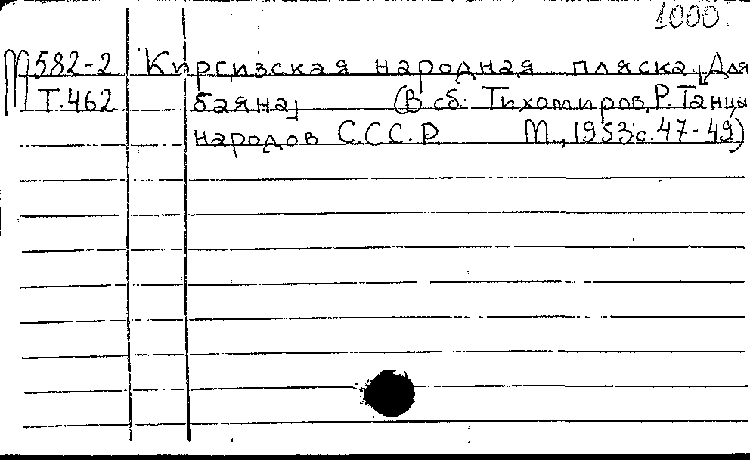 1000
М582-2 Киргизская народная пляска [Для
Т.462 баяна] (В сб: Тихомиров, Р. Танцы
народов С.С.С.Р М., 1953 с. 47-49)